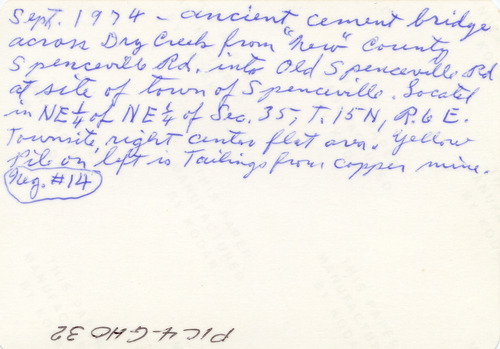 Sept. 1974 - ancient cement bridge
across Dry Creek from "New" County
Spenceville Rd. into Old Spenceville Rd
at site of town of Spenceville. Located
in NE¼ of NE¼ of Sec. 35, T. 15N, R. 6 E.
Townsite, right center flat area. Yellow
Pile on left is Tailings from copper mine.
Neg. #14
PIC 4-GHO 32